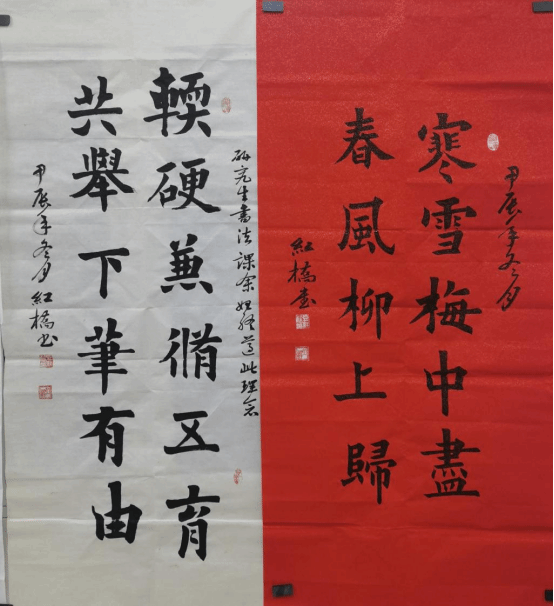 甲辰年冬月
寒雪梅中盡
春風柳上歸
紅橋書
研究生書法課余始終遵此理念
輭硬兼脩五育
共舉下筆有由
甲辰年冬月紅橋书